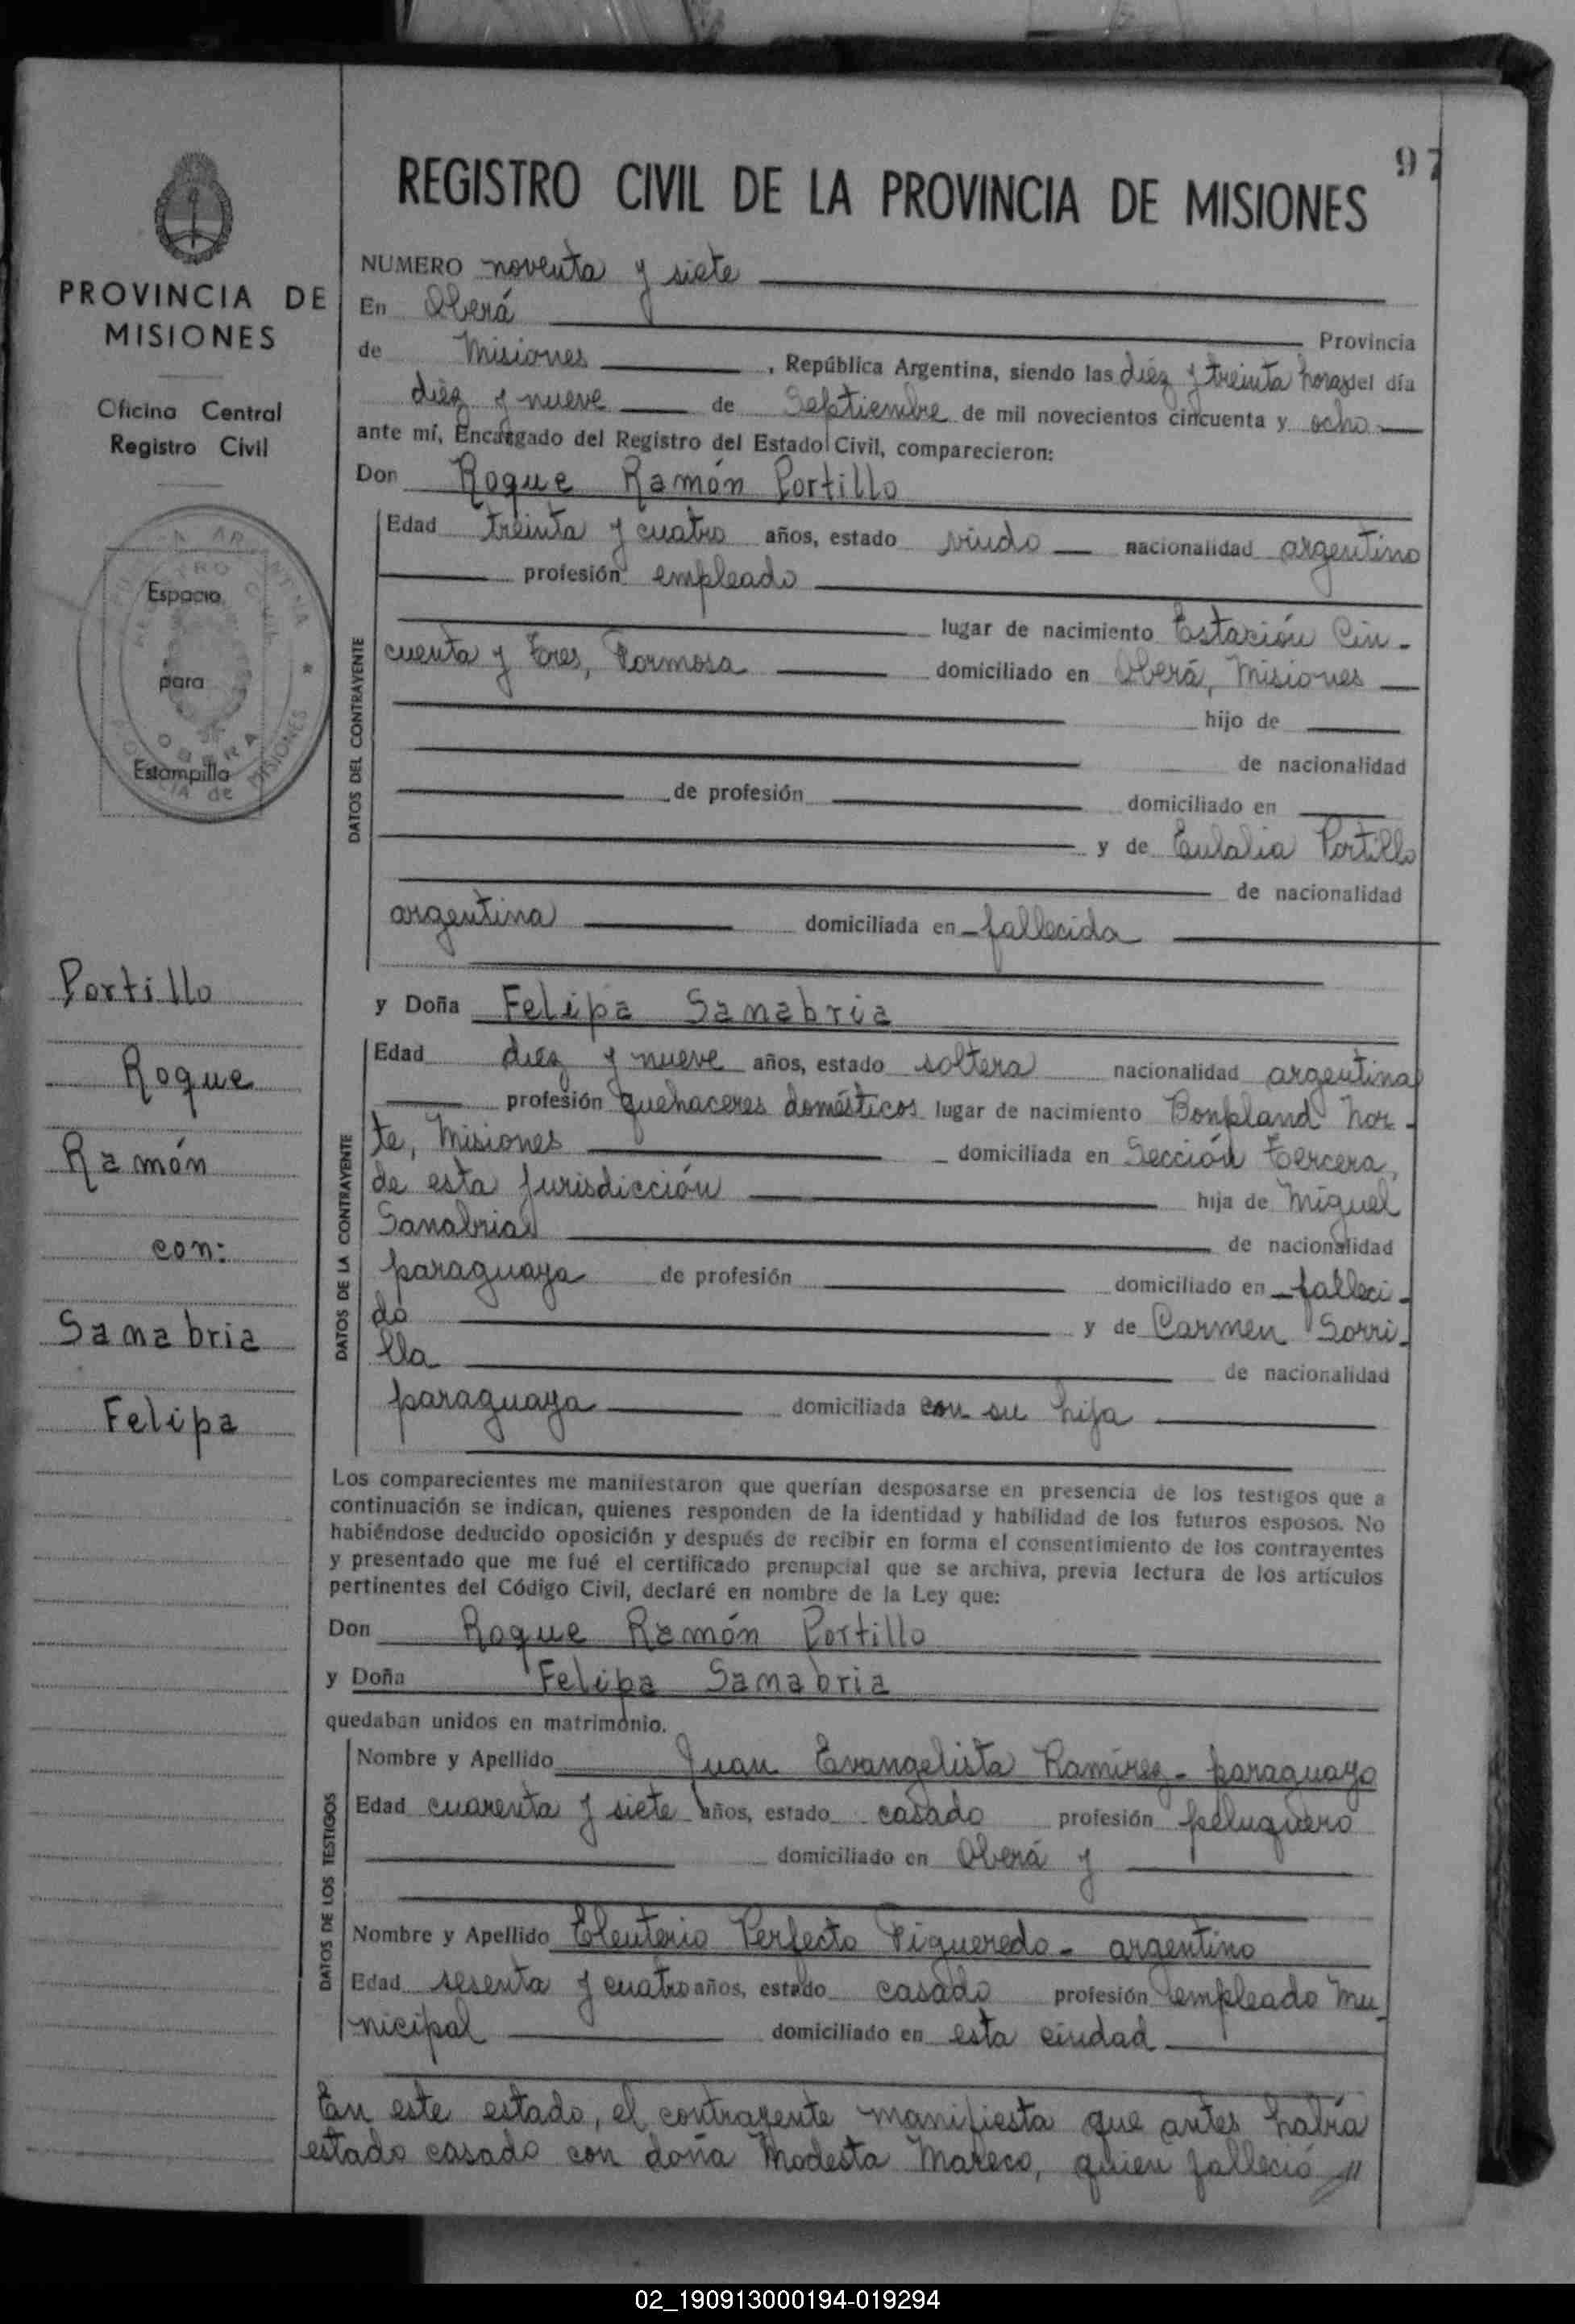 97
REGISTRO CIVIL DE LA PROVINCIA DE MISIONES
PROVINCIA DE
MISIONES
Oficina Central
Registro Civil
Espacio
para
Estampilla
OBERA
Portillo
Roque
Ramón
con:
Sanabria
Felipa
NUMERO noventa y siete
En Oberá Provincia
de Misiones, República Argentina, siendo las diez y treinta horas del día
diez y nueve de Septiembre de mil novecientos cincuenta y ocho
ante mí, Encargado del Registro del Estado Civil, comparecieron:
Don Roque Ramón Portillo
DATOS DEL CONTRAYENTE
Edad treinta y cuatro años, estado viudo nacionalidad argentino
profesión empleado
lugar de nacimiento Estación Cin-
cuenta y Tres, Formosa domiciliado en Oberá, Misiones
hijo de
de nacionalidad
de profesión domiciliado en
y de Eulalia Portillo
de nacionalidad
argentina domiciliada en fallecida
y Doña Felipa Sanabria
DATOS DE LA CONTRAYENTE
Edad diez y nueve años, estado soltera nacionalidad argentina
profesión quehaceres domésticos lugar de nacimiento Bonpland Nor-
te, Misiones domiciliada en Sección Tercera,
de esta jurisdicción hija de Miguel
Sanabria de nacionalidad
paraguaya de profesión domiciliado en falleci-
do y de Carmen Sorri-
lla de nacionalidad
paraguaya domiciliada con su hija
Los comparecientes me manifestaron que querían desposarse en presencia de los testigos que a
continuación se indican, quienes responden de la identidad y habilidad de los futuros esposos. No
habiéndose deducido oposición y después de recibir en forma el consentimiento de los contrayentes
y presentado que me fué el certificado prenupcial que se archiva, previa lectura de los artículos
pertinentes del Código Civil, declaré en nombre de la Ley que:
Don Roque Ramón Portillo
y Doña Felipa Sanabria
quedaban unidos en matrimonio.
DATOS DE LOS TESTIGOS
Nombre y Apellido Juan Evangelista Ramírez - paraguayo
Edad cuarenta y siete años, estado casado profesión peluquero
domiciliado en Oberá y
Nombre y Apellido Eleuterio Perfecto Figueredo - argentino
Edad sesenta y cuatro años, estado casado profesión empleado mu-
nicipal domiciliado en esta ciudad
En este estado, el contrayente manifiesta que antes había
estado casado con doña Modesta Mareco, quien falleció //
02_190913000194-019294